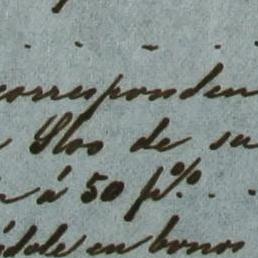 corresponden
Slos de su
á 50 p%. . .
ádole en bonos